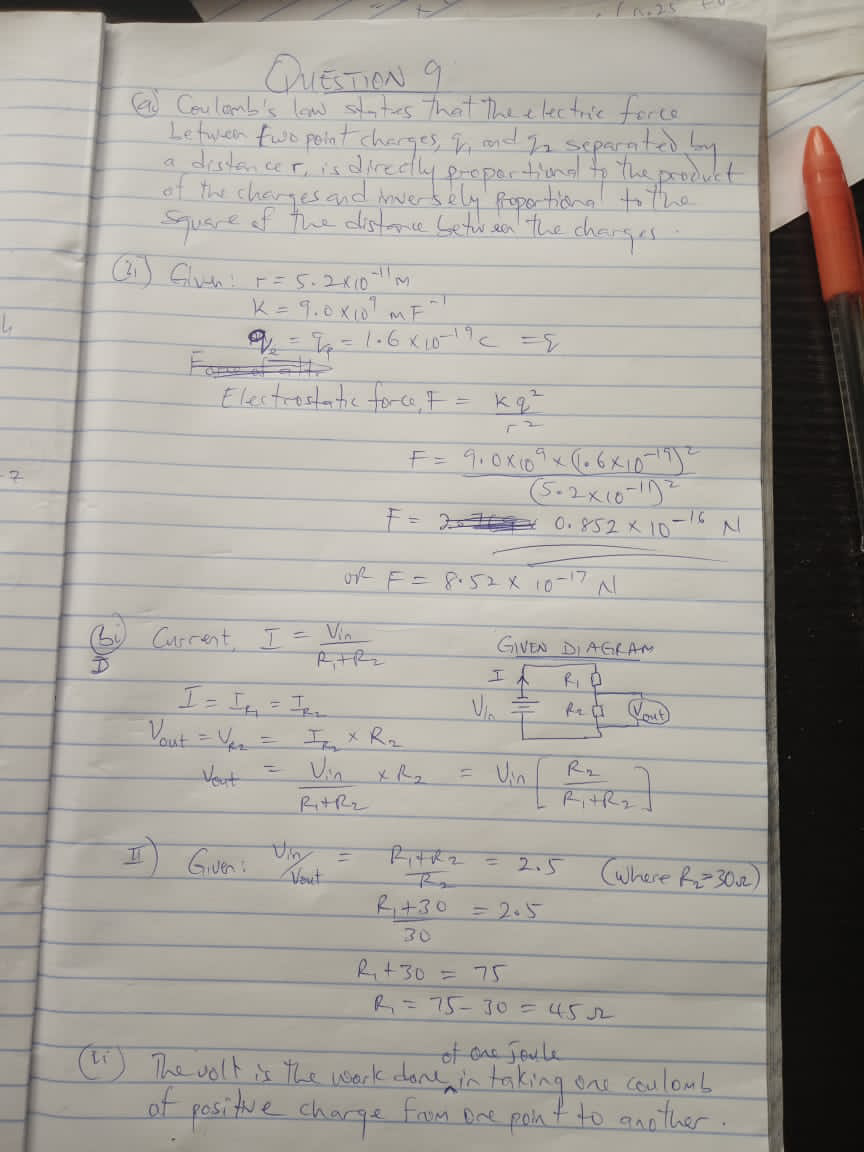 QUESTION 9
(ai) Coulomb's law states that the electric force
between two point charges, q₁ and q₂ separated by
a distance r, is directly proportional to the product
of the charges and inversely proportional to the
square of the distance between the charges.
(ii) Given: r = 5.2 x 10⁻¹¹ m
K = 9.0 x 10⁹ mF⁻¹
qₑ = qₚ = 1.6 x 10⁻¹⁹ C = q
Electrostatic force, F = Kq²/r²
F = 9.0x10⁹ x (1.6x10⁻¹⁹)²/(5.2x10⁻¹¹)²
F = 0.852 x 10⁻¹⁶ N
or F = 8.52 x 10⁻¹⁷ N
(bi) Current, I = Vin/R₁+R₂
GIVEN DIAGRAM
I
I R₁
Vin R₂ Vout
I = I_R₁ = I_R₂
Vout = V_R₂ = I_R₂ x R₂
Vout = Vin/R₁+R₂ x R₂ = Vin [R₂/R₁+R₂]
II) Given: Vin/Vout = R₁+R₂/R₂ = 2.5 (where R₂=30Ω)
R₁+30/30 = 2.5
R₁+30 = 75
R₁ = 75-30 = 45Ω
of one joule
(ii) The volt is the work done ^ in taking one coulomb
of positive charge from one point to another.